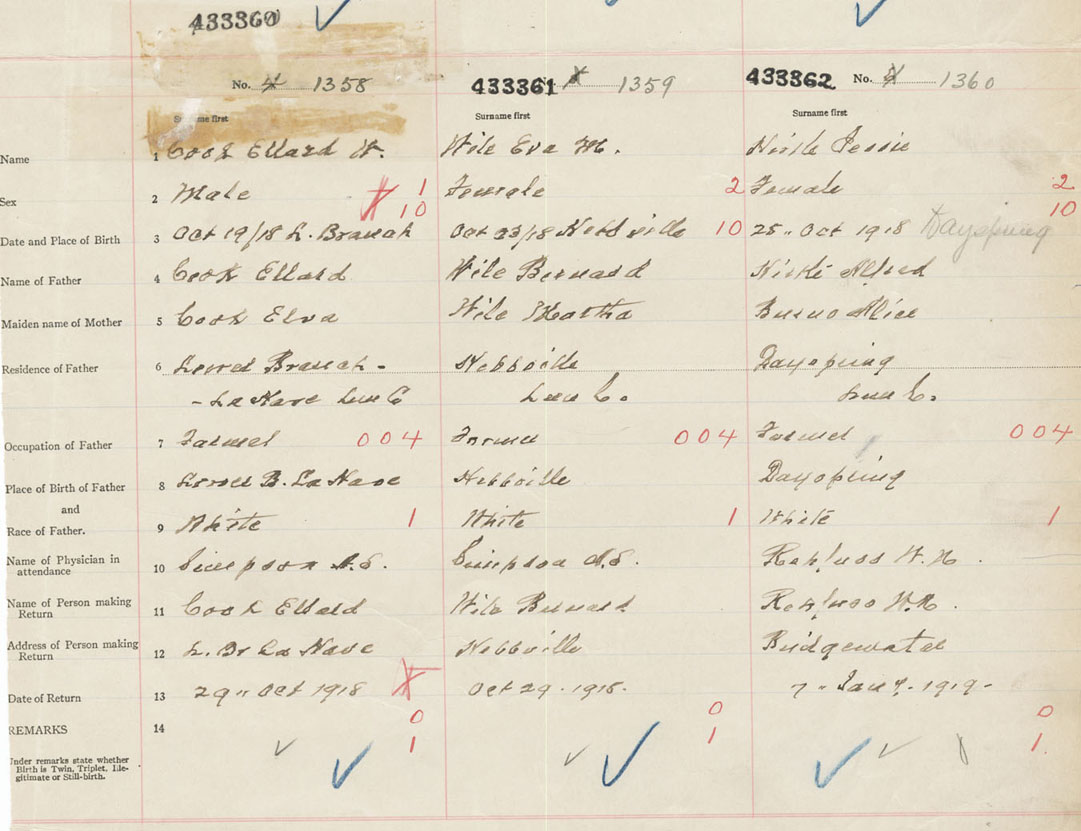 433360
No. 4 1358 433361 4 1359 433362 No. 4 1360
Surname first Surname first Surname first
Name 1 Cook Ellard W. Wile Eva M. Jessie
Sex 2 Male 1 Female 2 Female 2
10 10
Date and Place of Birth 3 Oct 19/18 L. Branch Oct 23/18 Hebbville 10 25" Oct 1918 Dayspring
Name of Father 4 Cook Ellard Wile Bernard Alfred
Maiden name of Mother 5 Cook Elva Wile Martha Alice
Residence of Father 6 Branch - Hebbville Dayspring
- LaHave Lun Co Lun C. Lun C.
Occupation of Father 7 Farmer 004 Farmer 004 Farmer 004
Place of Birth of Father 8 B. LaHave Hebbville Dayspring
and
Race of Father. 9 White 1 White 1 White 1
Name of Physician in
attendance 10 Simpson A.S. Simpson A.S.
Name of Person making
Return 11 Cook Ellard Wile Bernard
Address of Person making
Return 12 L. Br LaHave Hebbville Bridgewater
Date of Return 13 29" Oct 1918 Oct 29 - 1918. 7" Jany. - 1919 -
0 0 0
REMARKS 14
1 1 1.
Under remarks state whether
Birth is Twin, Triplet, Ille-
gitimate or Still-birth.